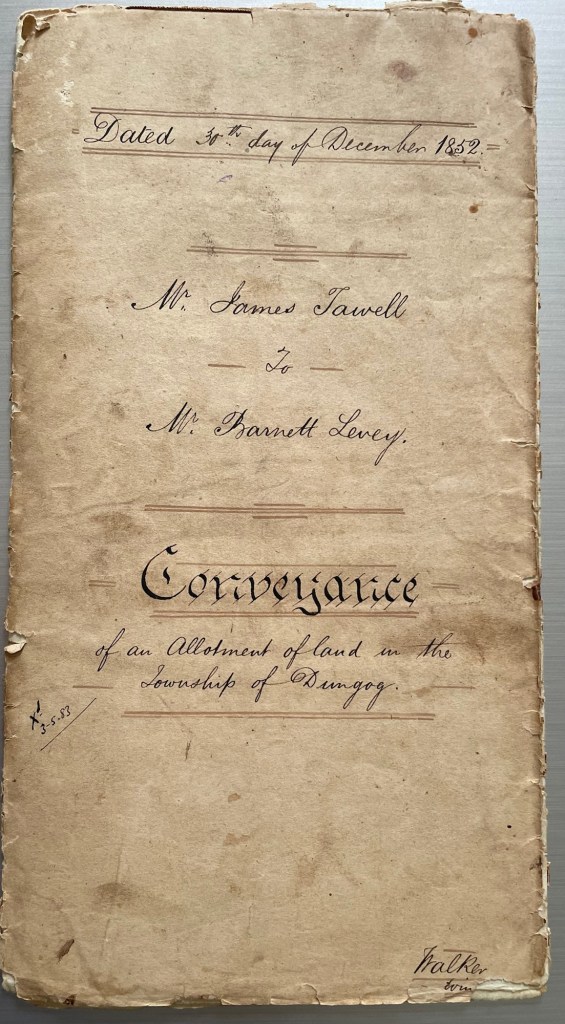 Dated 30th. day of December 1852.
Mr. James Tawell
To
Mr. Barnett Levey.
Conveyance
of an Allotment of land in the
Township of Dungog.
3-5-83
Walker